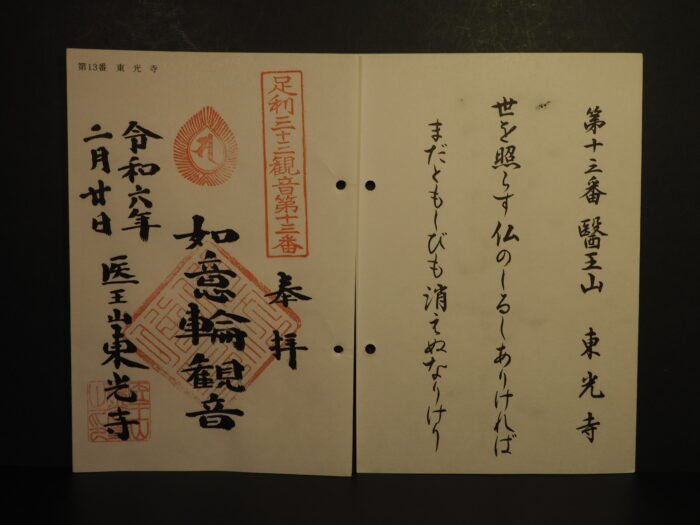 第十三番 醫王山 東光寺
世を照らす仏のしるしありければ
まだともしびも消えぬなりけり
第13番 東光寺
足利三十三観音第十三番
奉拝
如意輪観音
令和六年
二月廿日
医王山東光寺